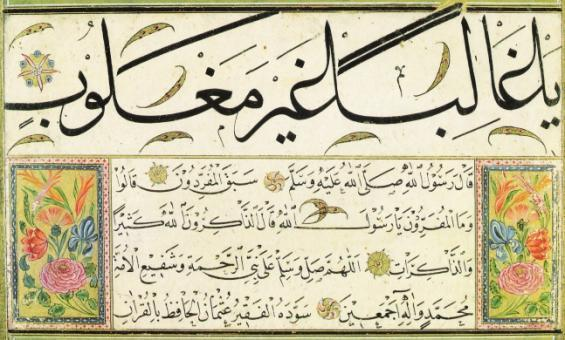 يا غالبا غير مغلوب
قال رسول الله صلى الله عليه وسلم سبق المفردون قالوا
وما المفردون يا رسول الله قال الذاكرون الله كثيرا
والذاكرات اللهم صل وسلم على نبي الرحمة وشفيع الامة
محمد وآله أجمعين سوده الفقير عثمان الحافظ بالقرآن